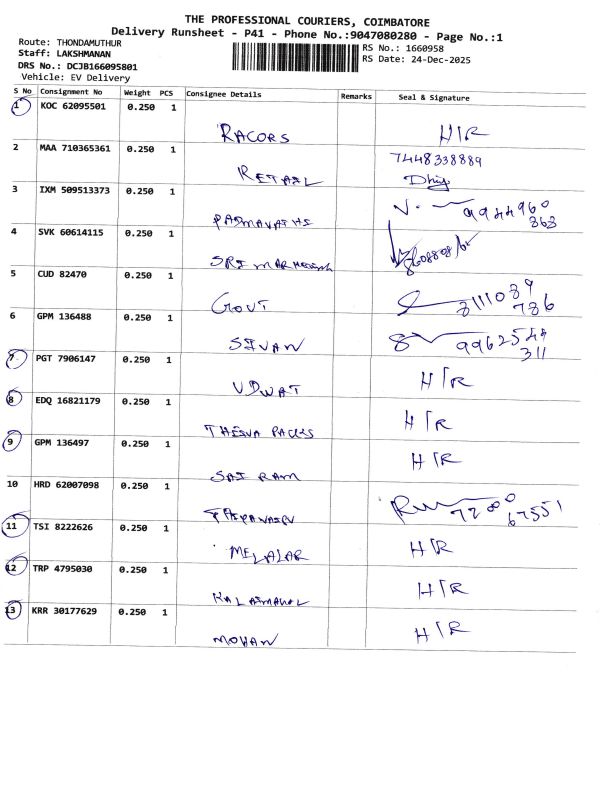 THE PROFESSIONAL COURIERS, COIMBATORE
Delivery Runsheet - P41 - Phone No.:9047080280 - Page No.:1
Route: THONDAMUTHUR
Staff: LAKSHMANAN
DRS No.: DCJB166095801
Vehicle: EV Delivery
RS No.: 1660958
RS Date: 24-Dec-2025
S No Consignment No Weight PCS Consignee Details Remarks Seal & Signature
1 KOC 62095501 0.250 1
RACORS H/R
2 MAA 710365361 0.250 1 7448338889
RETAIL
3 IXM 509513373 0.250 1 9944960
PADMAVATHI 863
4 SVK 60614115 0.250 1
SRI
5 CUD 82470 0.250 1 8111089
GOVT 786
6 GPM 136488 0.250 1 9962544
SIVAN 311
7 PGT 7906147 0.250 1 H/R
8 EDQ 16821179 0.250 1 H/R
9 GPM 136497 0.250 1 H/R
SAI RAM
10 HRD 62007098 0.250 1 7200
67551
11 TSI 8222626 0.250 1 H/R
MELALAR
12 TRP 4795030 0.250 1 H/R
13 KRR 30177629 0.250 1 H/R
MOHAN